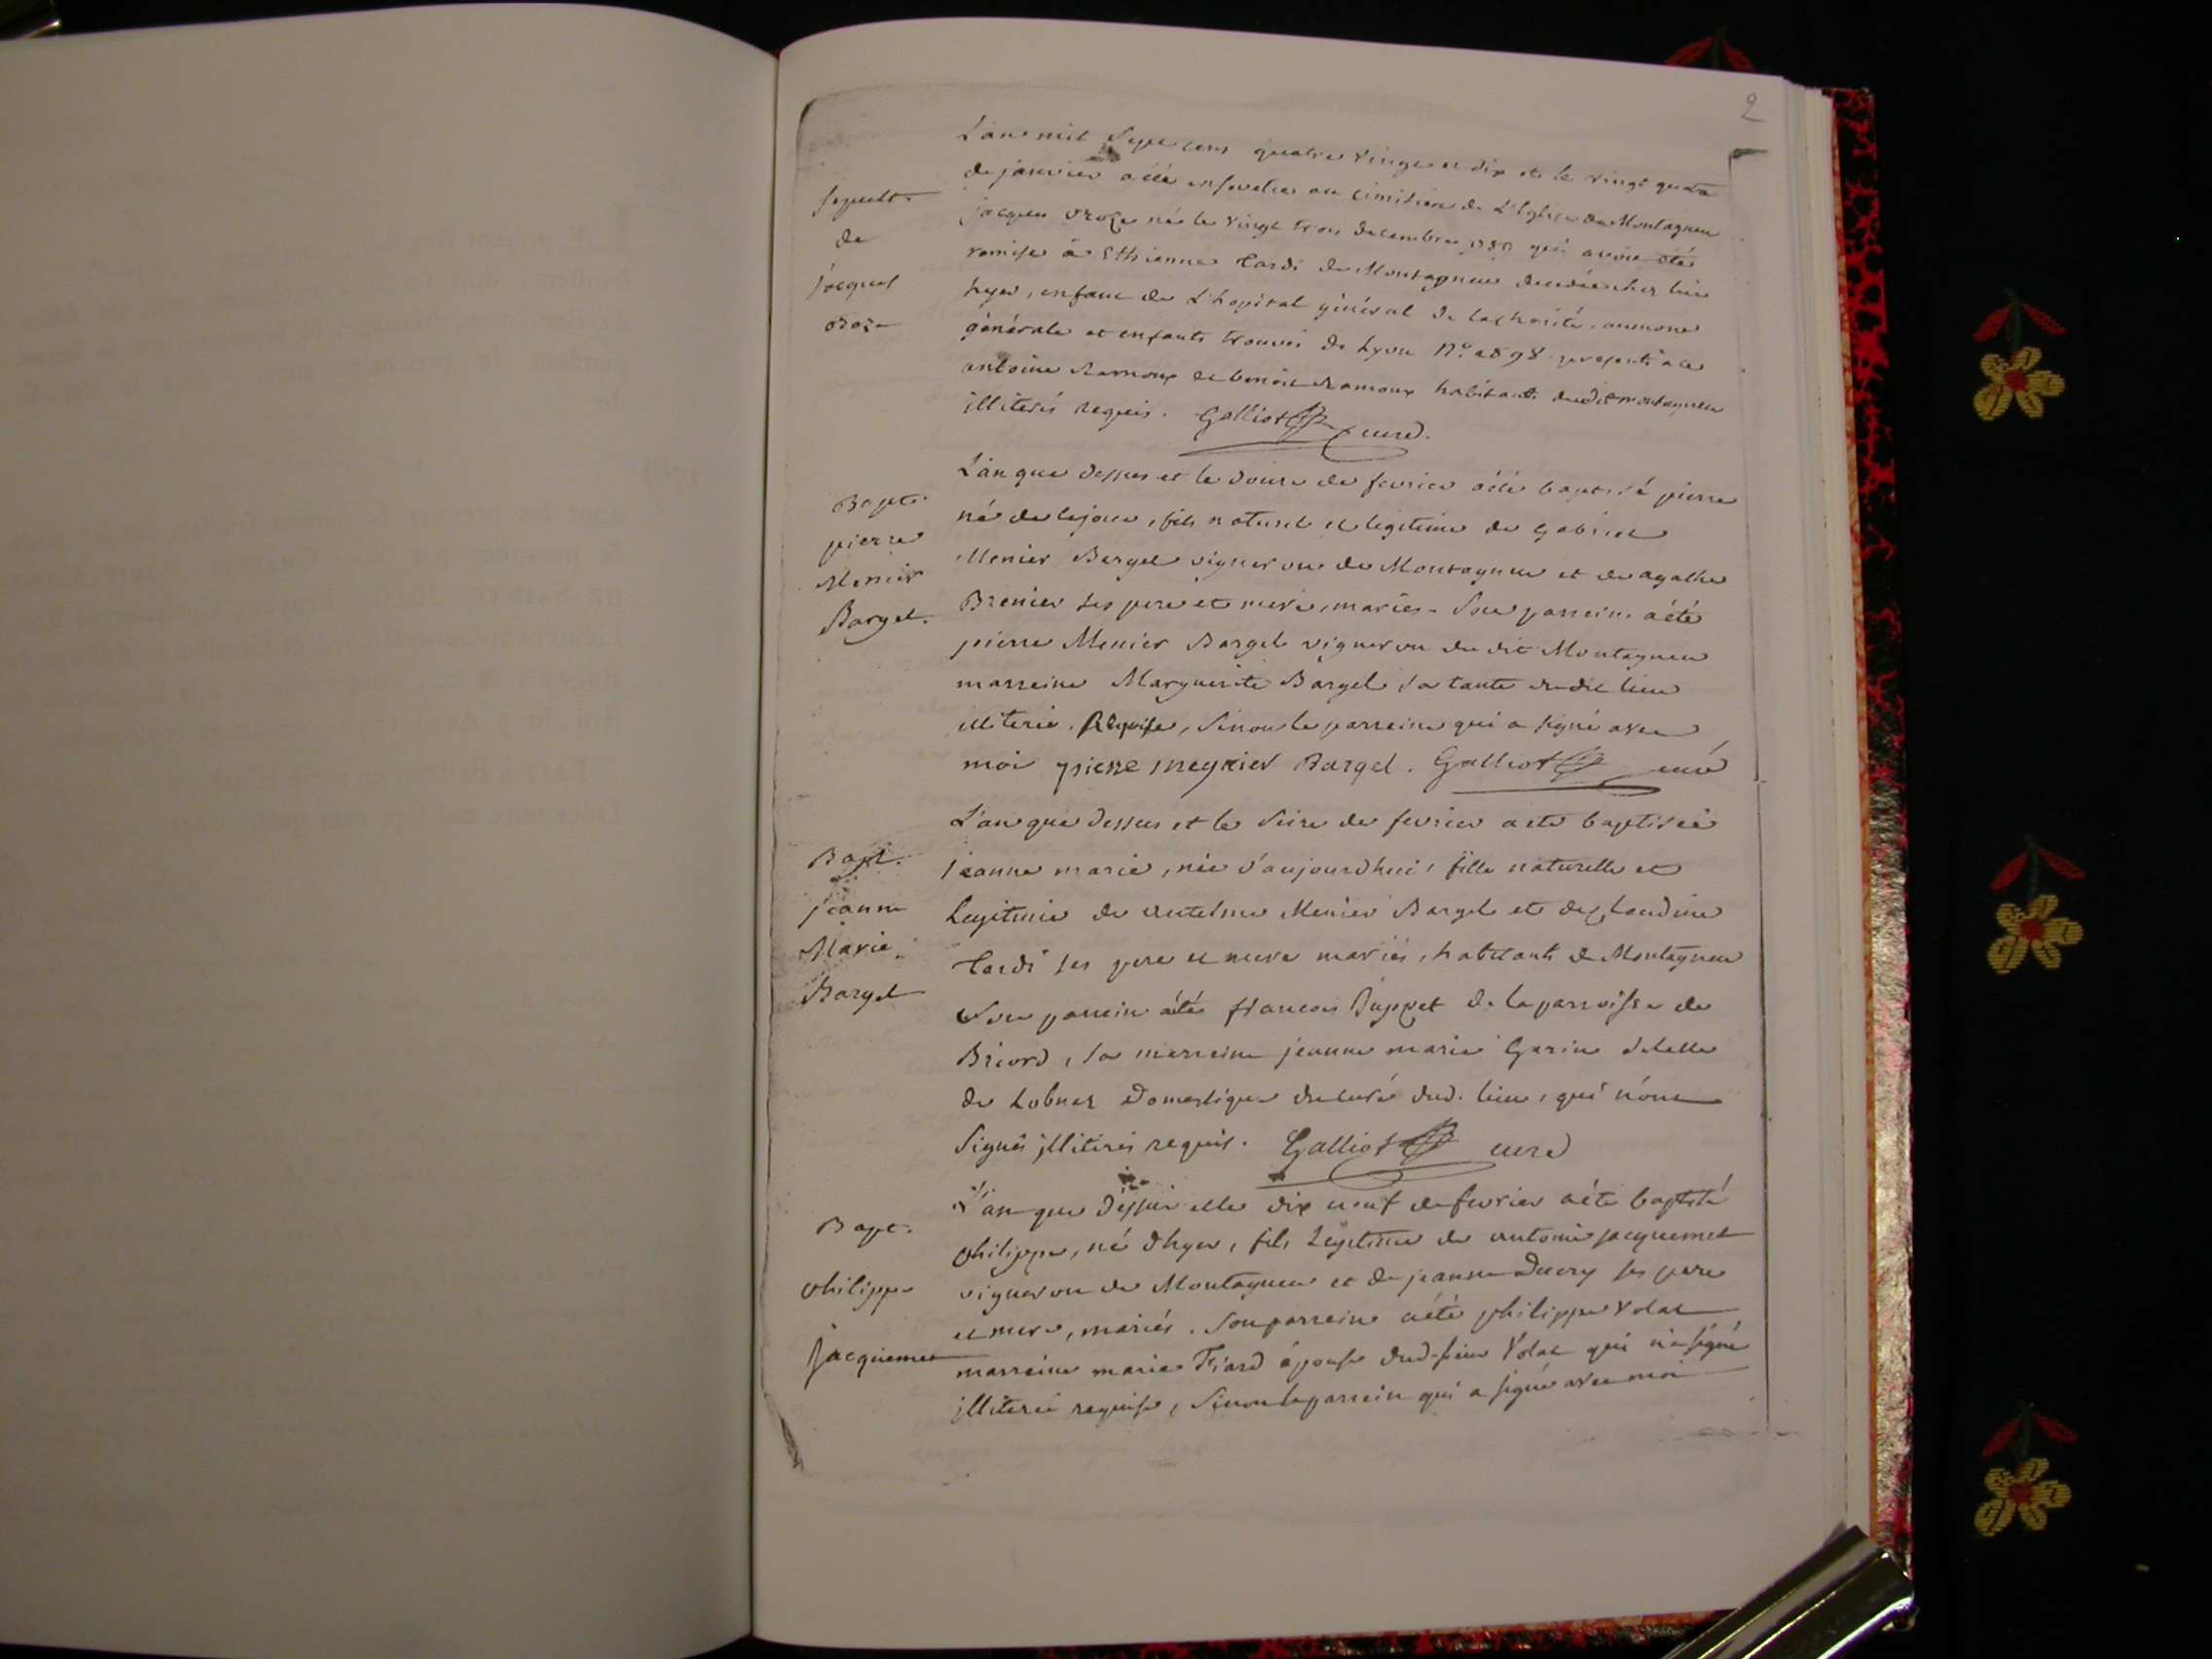 2
L'an mil sept cens quatre vingt et dix et le vingt quatre
de janvier a été ensevelie au cimitiere de L'Eglise de Montagneu
jacques oroze né le vingt trois decembre qui avoit été
remise à Ethienne tardi de Montagneu decedé chez lui
hyer, enfant de L'hopital général de la charité, aumone
générale et enfants trouvés de Lyon N.º presents a ce
antoine ramoux et benoit ramoux habitants dudit montagneu
illiterés requis. Galliot curé.
sepult.
de
jacques
oroze
L'an que dessus et le douze de fevrier a été baptisé pierre
né de ce jour, fils naturel et legitime de gabriel
Menier Bargel vigneron de Montagneu et de agathe
Brenier ses pere et mere, mariés. Son parrein a été
pierre Menier Bargel vigneron du dit Montagneu
marreine Marguerite Bargel sa tante du dit lieu
illiterée. Requise, sinon le parrein qui a signé avec
moi pierre meynier Bargel. Galliot curé
Bapt.
pierre
Menier
Bargel.
L'an que dessus et le seize de fevrier a eté baptisée
jeanne marie, née d'aujourdhui, fille naturelle et
Legitime de antelme Menier Bargel et de claudine
tardi ses pere et mere mariés, habitants de Montagneu
Son parrein a été francois Buppet de la parroisse de
Briord, sa marreine jeanne marie Garin
de Lobnez domestique du curé dud. lieu, qui n'ont
signés illiterés requis. Galliot curé
Bapt.
jeanne
Marie
Bargel
L'an que dessus et le dix neuf de fevrier a été baptisé
philippe, né d'hyer, fils Legitime de antoine jacquemet
vigneron de Montagneu et de jeanne Ducry ses pere
et mere, mariés. Son parrein a été philippe Volat
marreine marie Fiard épouse dud. sieur Volat qui n'a signé
illiterée requise, sinon le parrein qui a signé avec moi
Bapt.
philippe
jacquemet